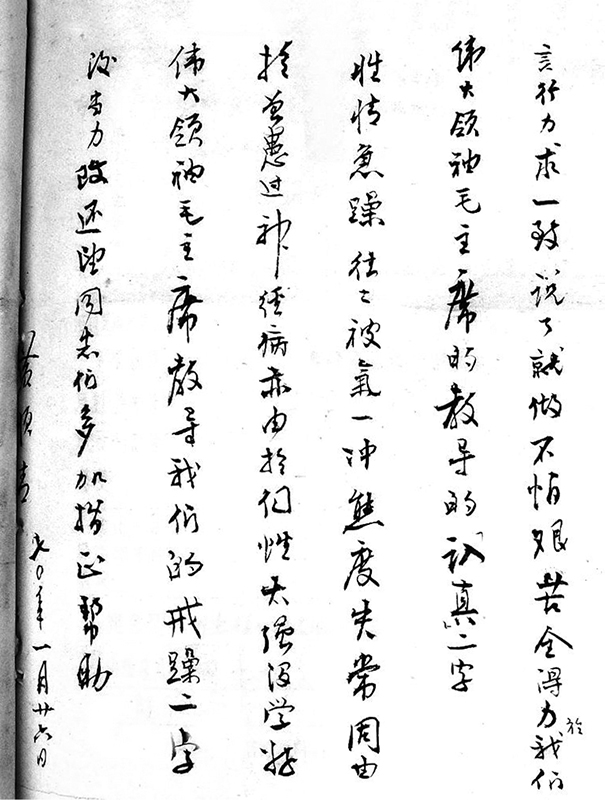 言行力求一致说了就做不怕艰苦全得力於我们
伟大领袖毛主席的教导的「认真」二字
性情急躁往往被气一冲态度失常因由
於曾患过神经病亦由於個性太强没学好
伟大领袖毛主席教导我们的戒躁二字
汝当力改还望同志们多加指正帮助
七〇年一月廿六日